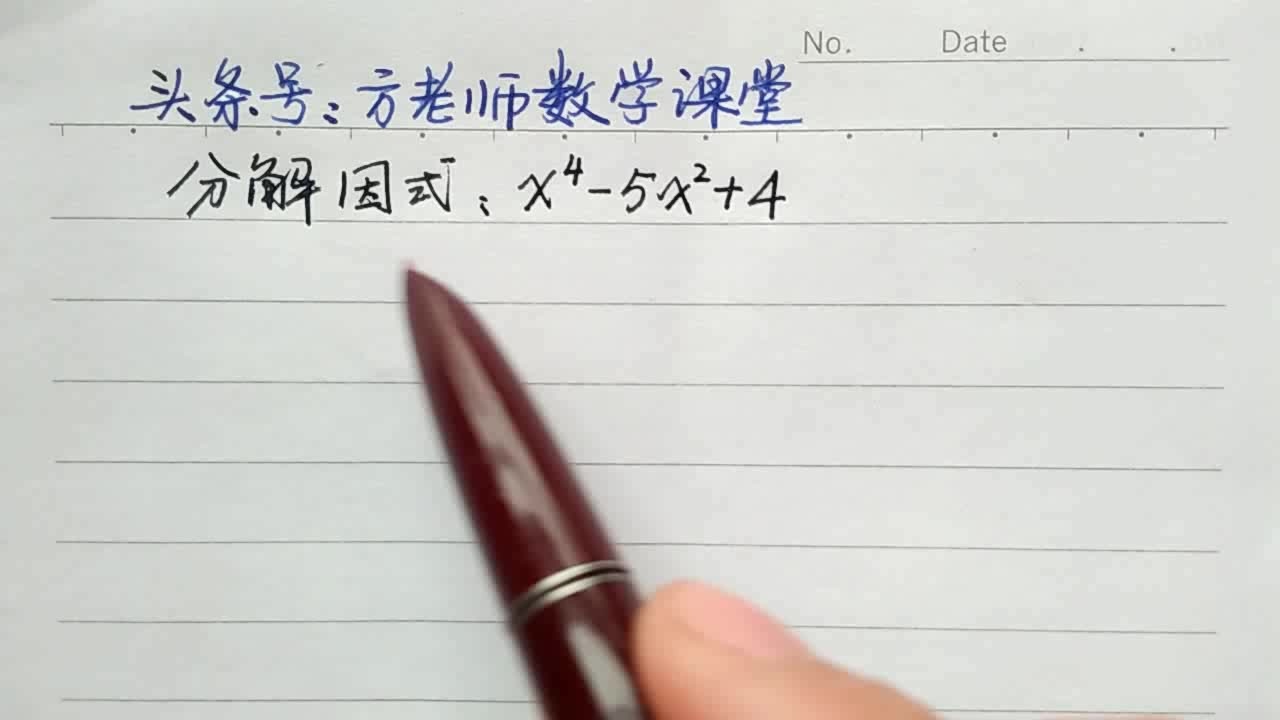 No. Date
头条号：方老师数学课堂
分解因式：x⁴-5x²+4